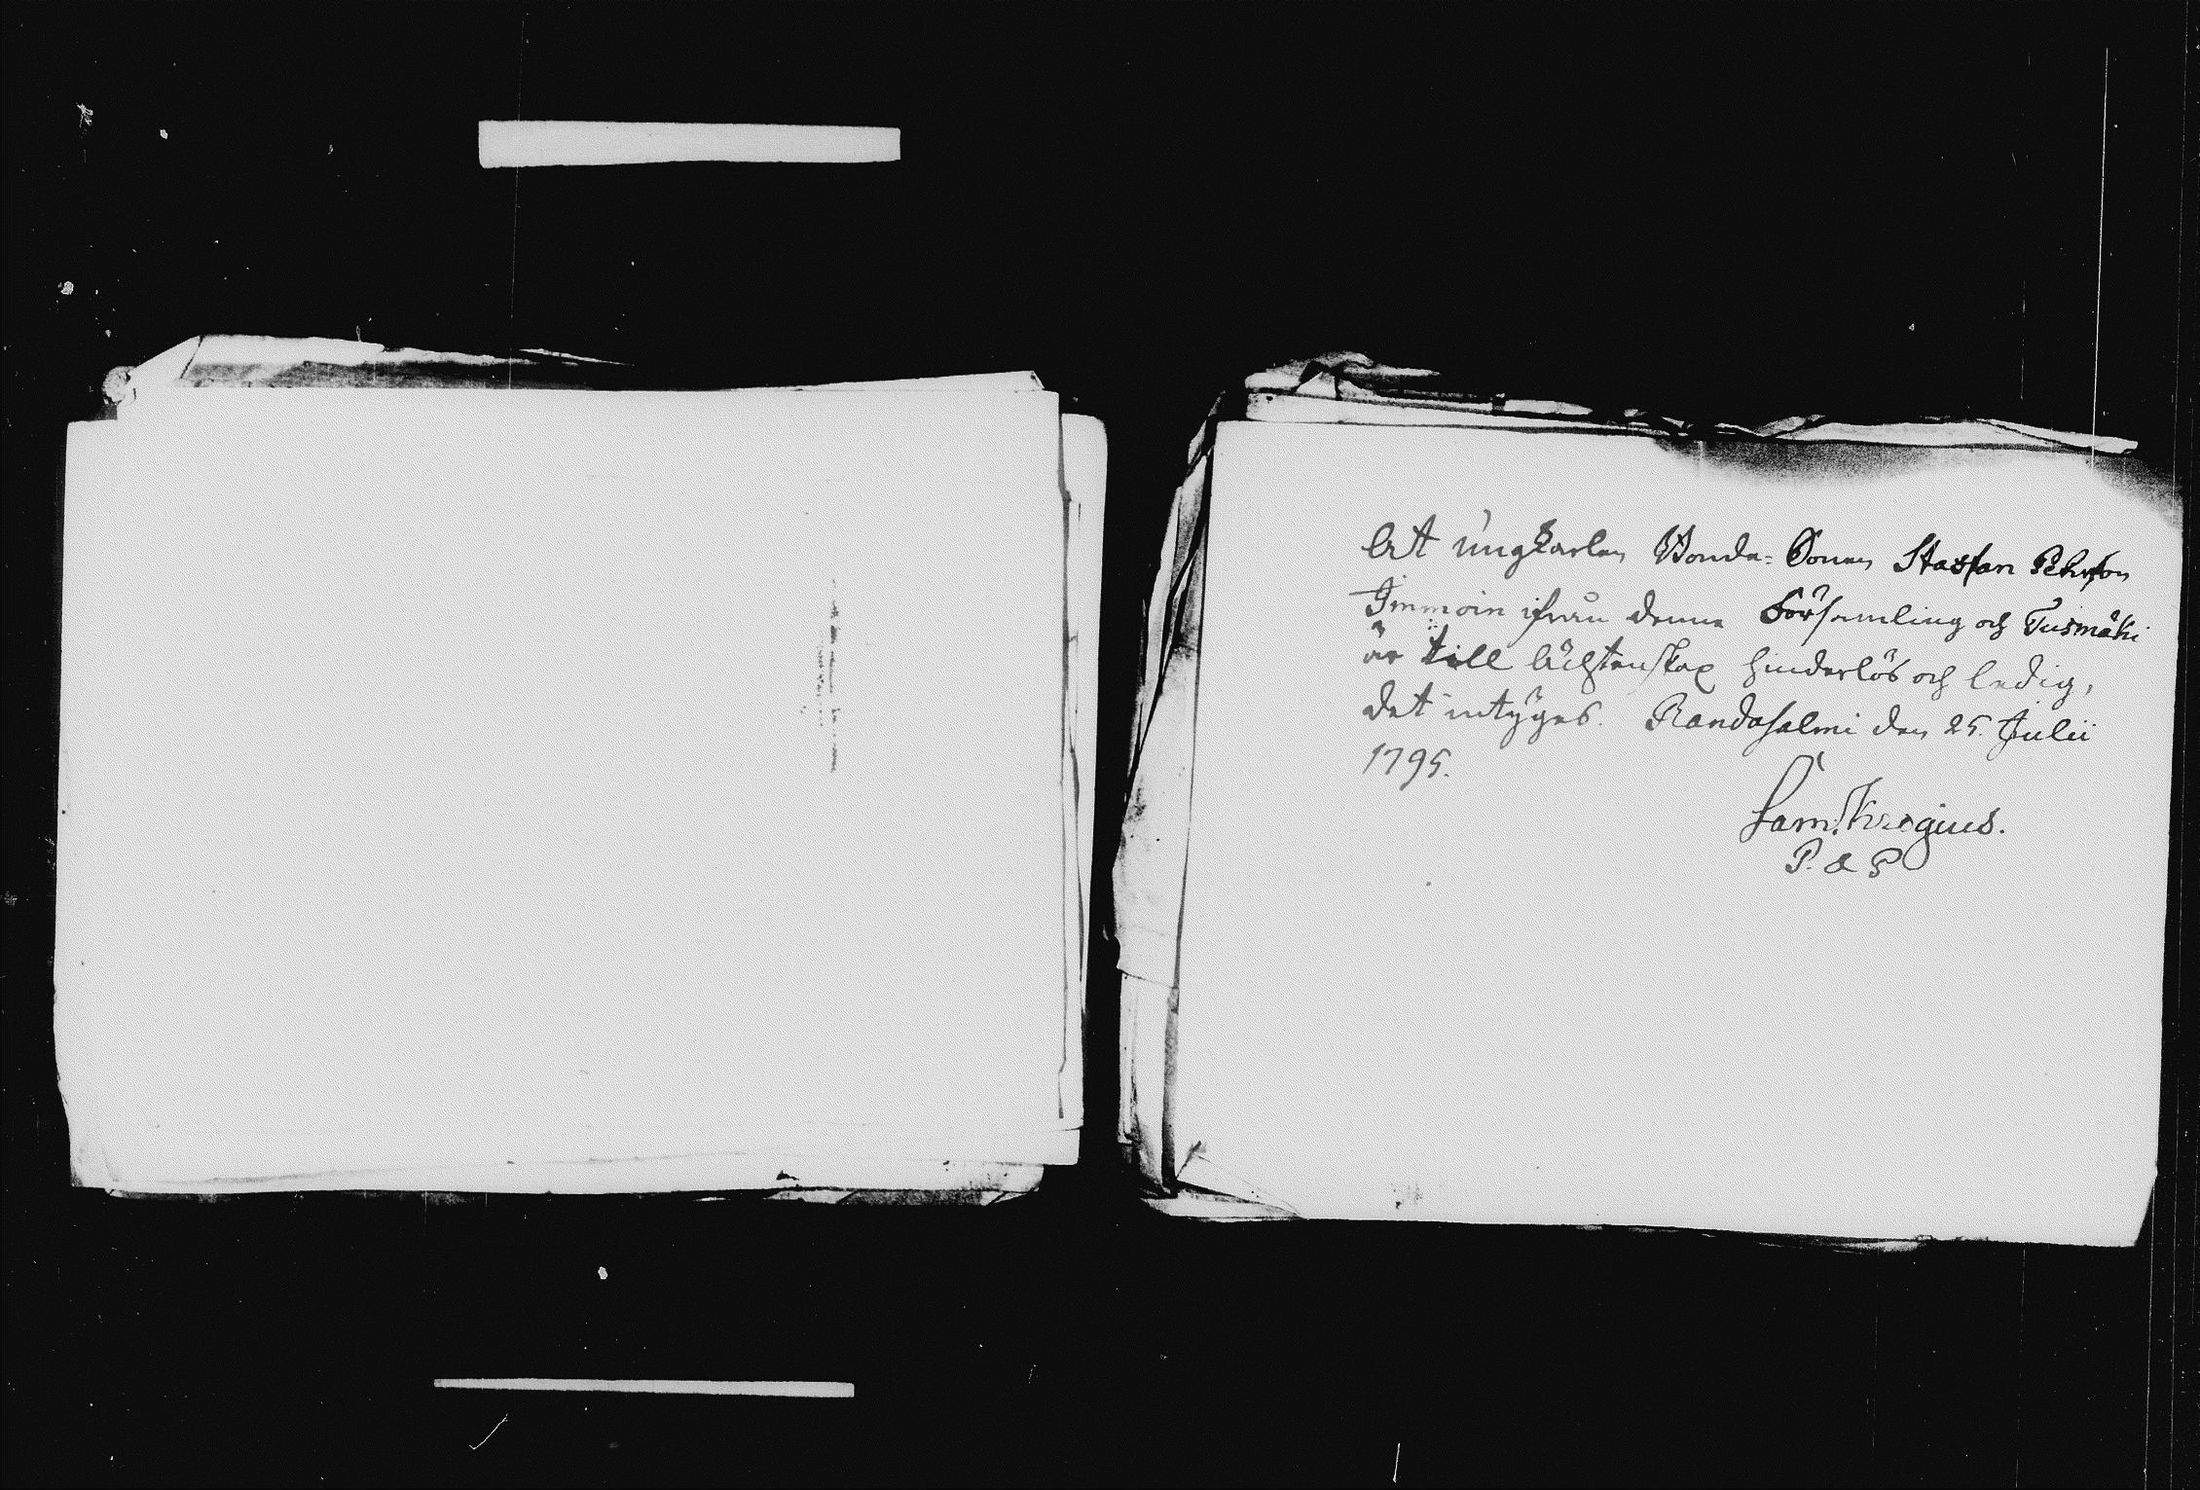 At ungkarlen Bonde-Sonen Staffan Pehrson
Immoin ifrån denne Församling och Tuismäki
är till äcktenskap hinderlös och ledig,
det intÿgas. Randasalmi den 25. Julii
1795.
Sam. Krogius.
P. & P